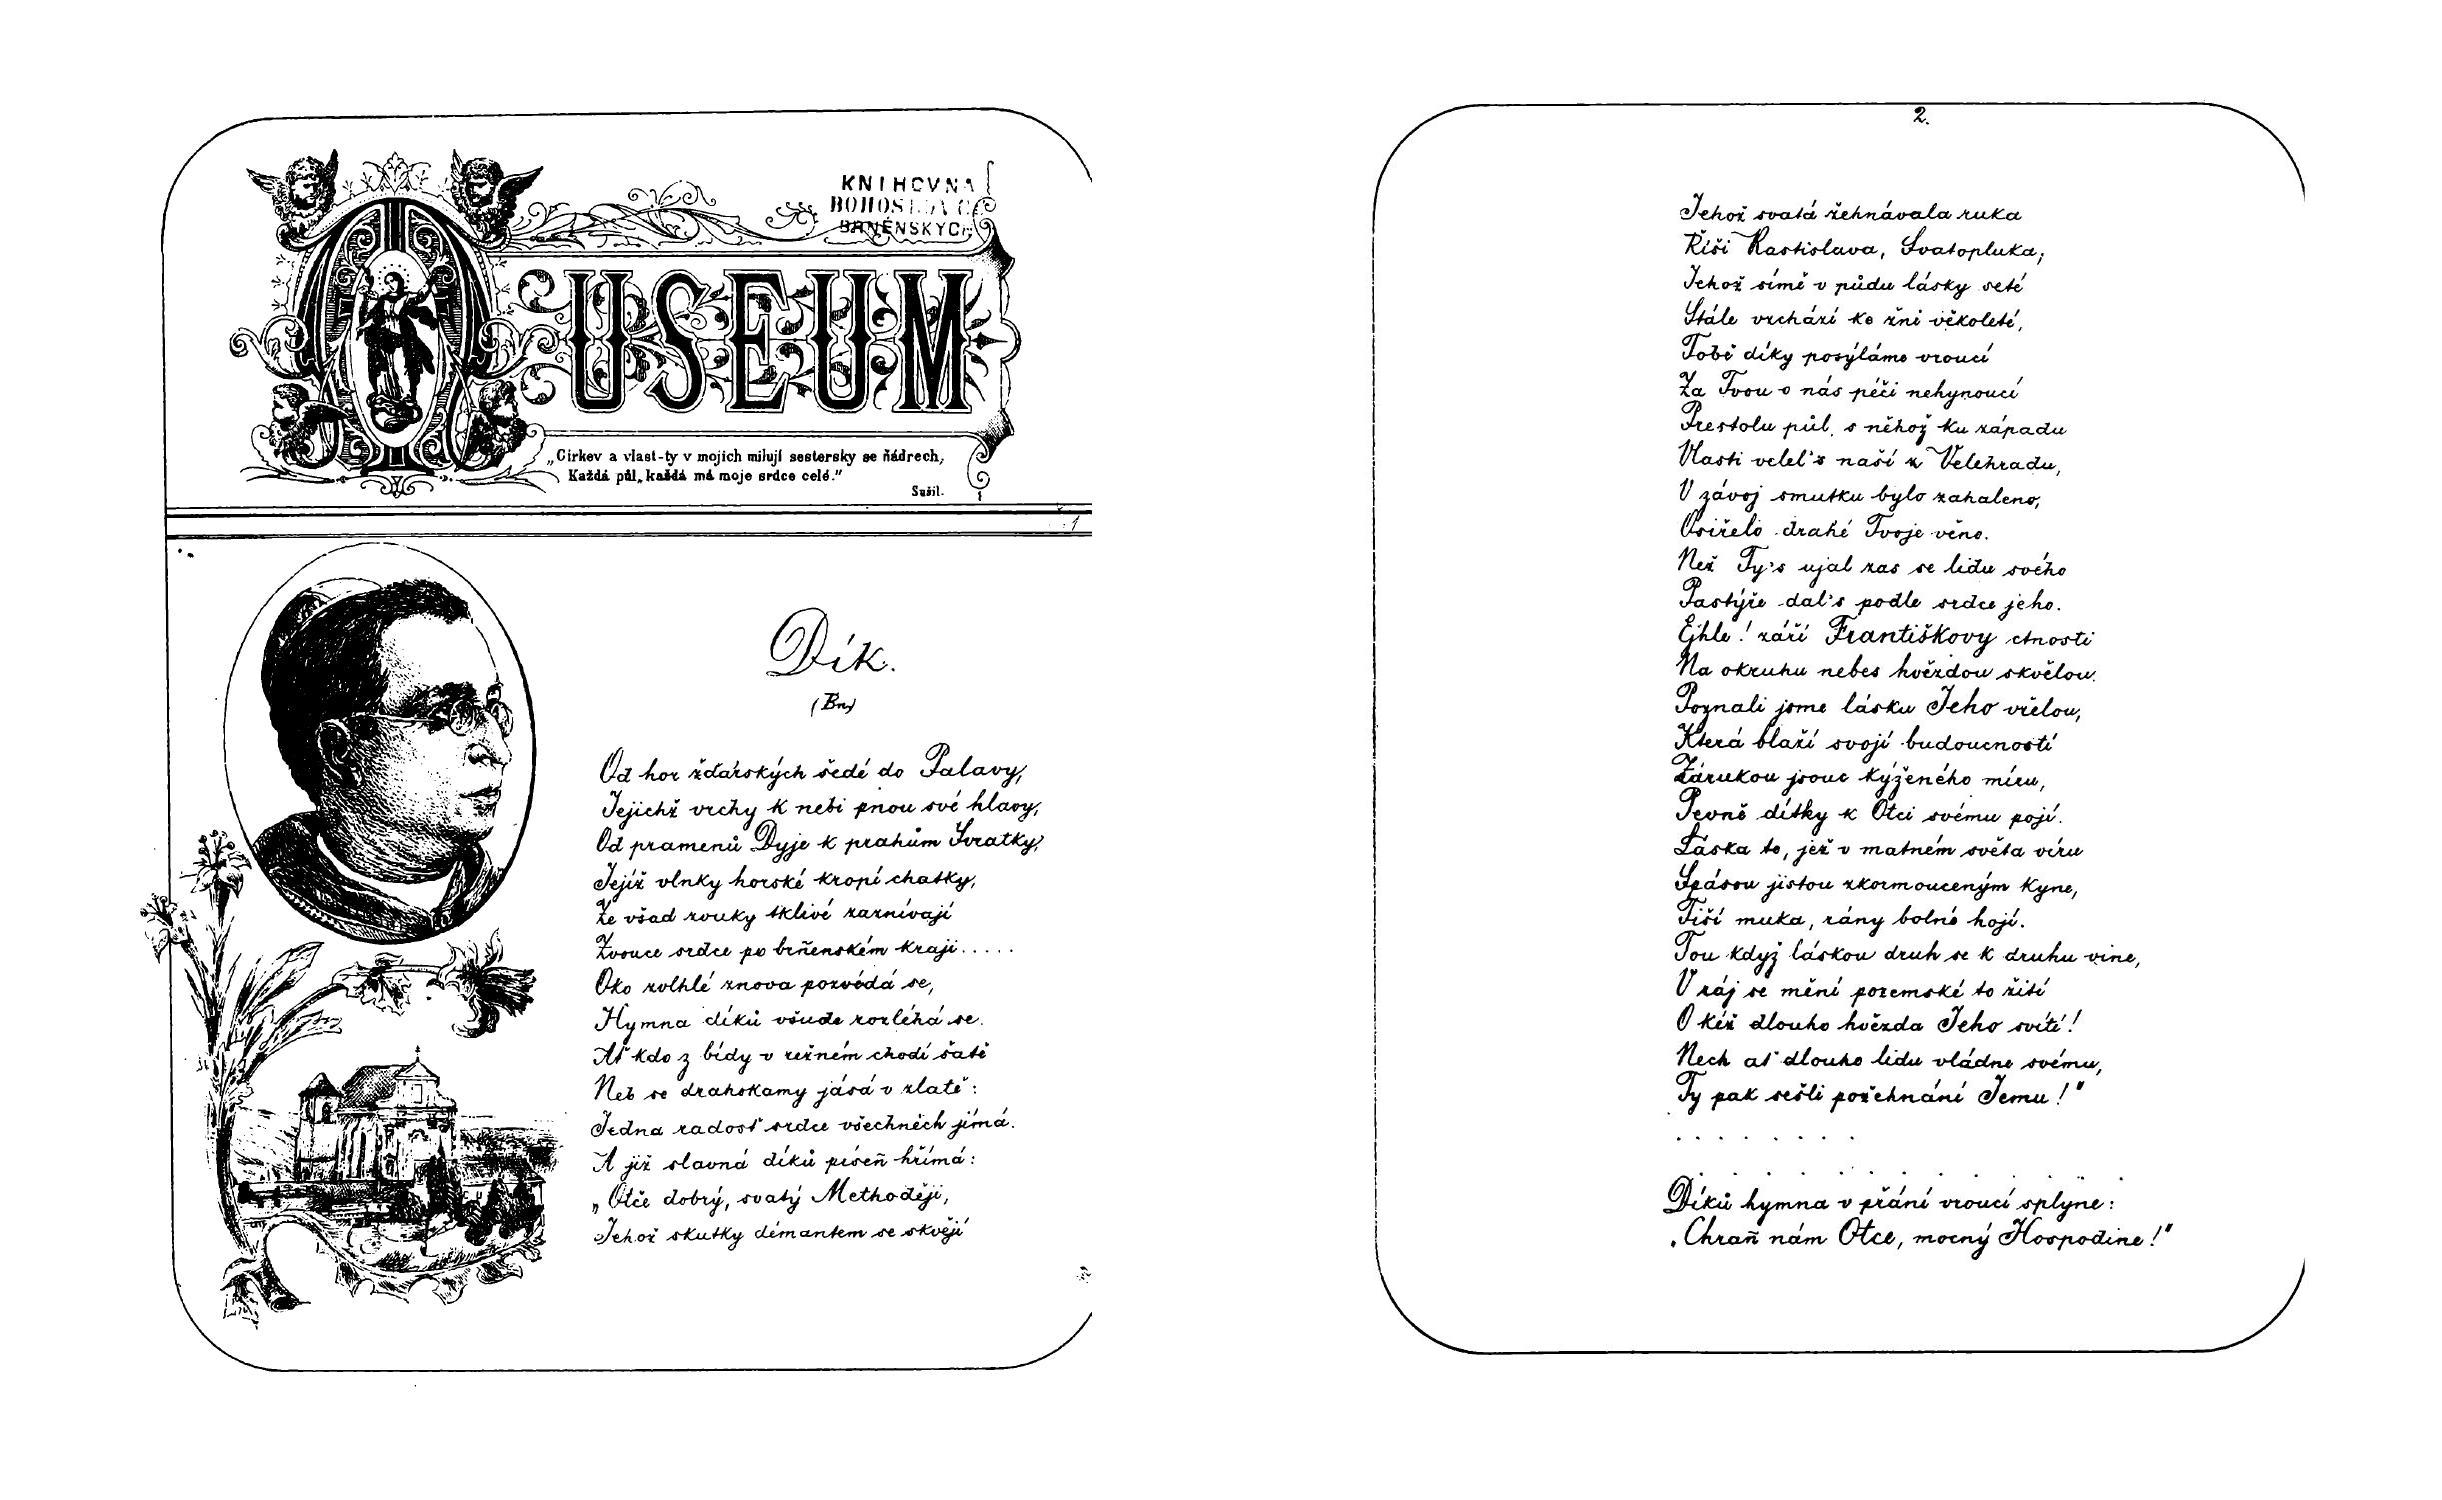 KNIHOVNA
BOHOSLOVCŮ
BRNĚNSKÝCH
MUSEUM
„Církev a vlast-ty v mojich milují sestersky se ňádrech,
Každá půl, každá má moje srdce celé."
Sušil.
Dík.
(Bn)
Od hor žďárských šedé do Palavy,
Jejichž vrchy k nebi pnou své hlavy,
Od pramenů Dyje k prahům Svratky,
Jejíž vlnky horské kropí chatky,
Ze všad zvuky tklivé zaznívají
Zvouce srdce po brňenském kraji.....
Oko zvlhlé znova pozvédá se,
Hymna díků všude rozléhá se.
Ať kdo z bídy v režném chodí šatě
Neb se drahokamy jásá v zlatě:
Jedna radosť srdce všechněch jímá.
A již slavná díků píseň hřímá:
„Otče dobrý, svatý Methoději,
Jehož skutky démantem se skvějí
2.
Jehož svatá žehnávala ruka
Říši Rastislava, Svatopluka;
Jehož símě v půdu lásky seté
Stále vzchází ke žni věkoleté,
Tobě díky posýláme vroucí
Za Tvou o nás péči nehynoucí
Prestolu půl, s něhož ku západu
Vlasti velel's naší z Velehradu,
V závoj smutku bylo zahaleno,
Osiřelo drahé Tvoje věno.
Než Ty's ujal zas se lidu svého
Pastýře dal's podle srdce jeho.
Ejhle! září Františkovy ctnosti
Na okruhu nebes hvězdou skvělou.
Poznali jsme lásku Jeho vřelou,
Která blaží svojí budoucností
Zárukou jsouc kýženého míru,
Pevně dítky k Otci svému pojí.
Láska to, jež v matném světa víru
Spásou jistou zkormouceným kyne,
Tiší muka, rány bolné hojí.
Tou když láskou druh se k druhu vine,
V ráj se mění pozemské to žití
O kéž dlouho hvězda Jeho svítí!
Nech ať dlouho lidu vládne svému,
Ty pak sešli požehnání Jemu!"
Díků hymna v přání vroucí splyne:
„Chraň nám Otce, mocný Hospodine!"